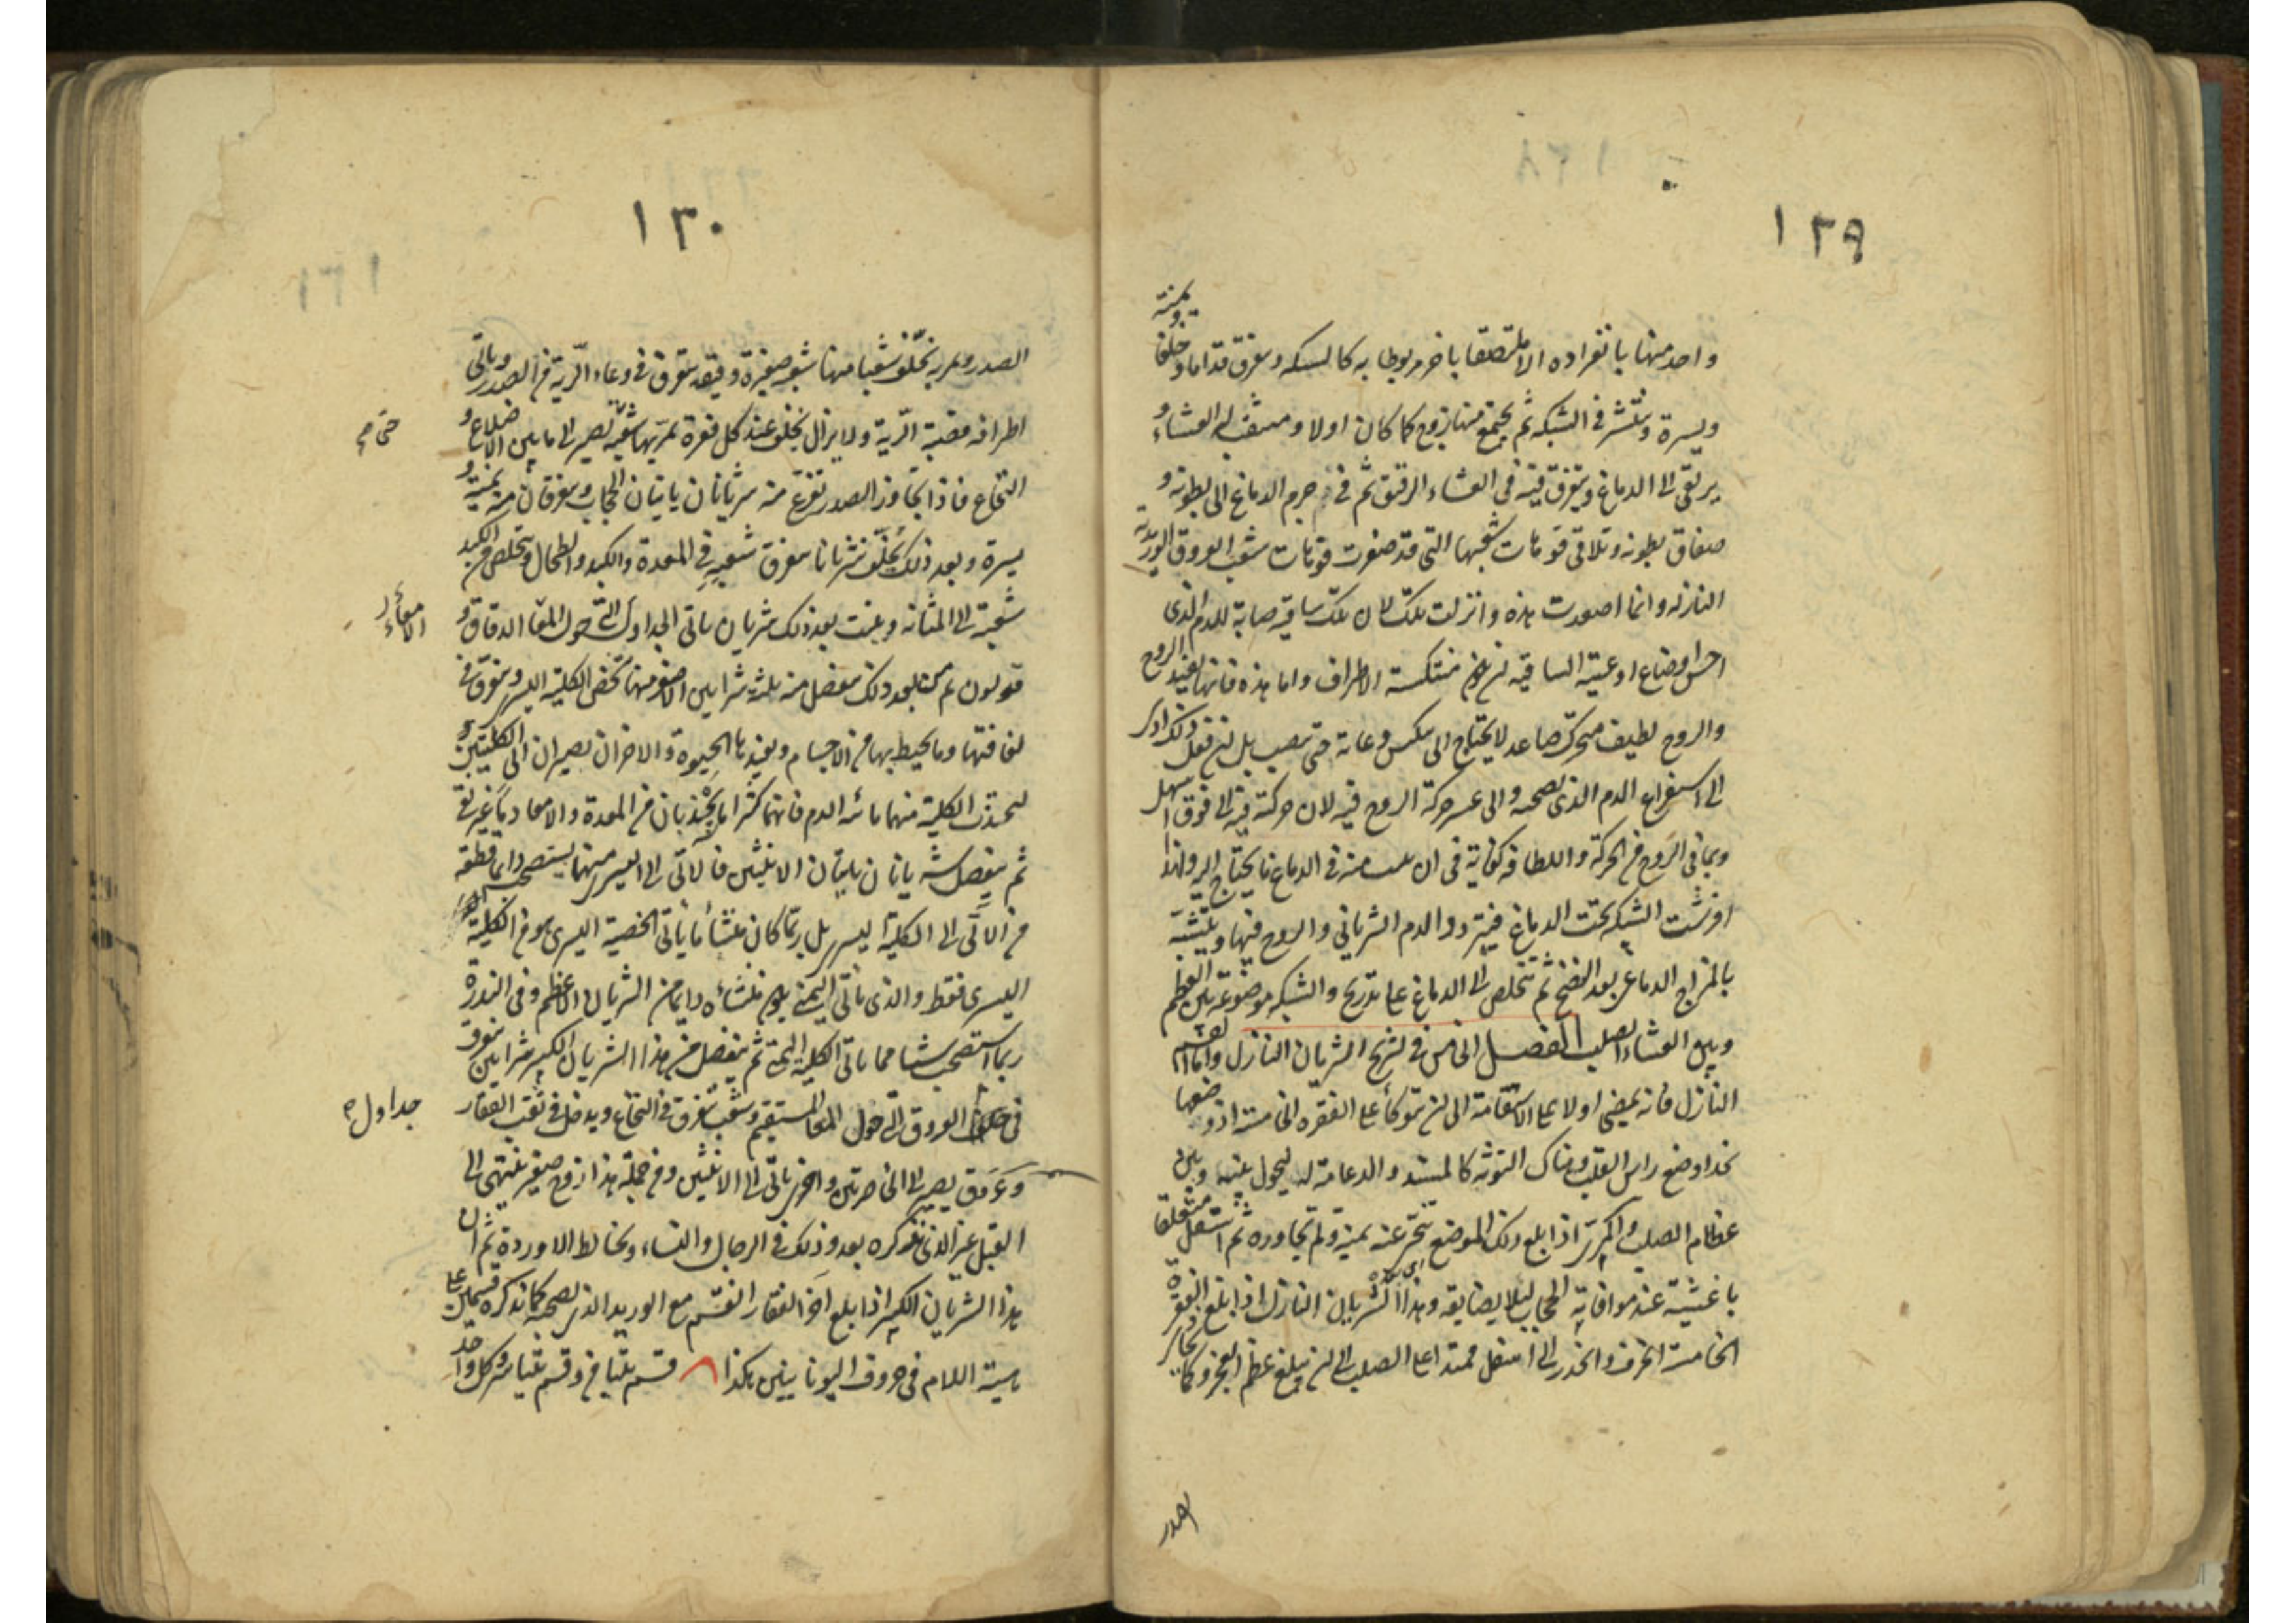 ١٢٩
واحد منها بانفراده الا ملتصقا باخر مربوطا به كالشبكه ويتفرق قداما وخلفا ويمنة
ويسرة وينتشر في الشبكه ثم يجتمع منها زوج كما كان اولا وينثقب له الغشاء و
يرتقى الى الدماغ ويتفرق فيه فى الغشاء الرقيق ثم فى جرم الدماغ الى بطونه و
صفاق بطونه وتلاقى فوهات شعبها التى قد صغرت فوهات شعب العروق الوريدية
النازله وانما اصعدت هذه وانزلت تلك لان تلك ساقية صابة للدم الذى
احسن اوضاع اوعيته الساقيه ان يكون منتكسة الاطراف واما هذه فانها تفيد الروح
والروح لطيف متحرك صاعد لا يحتاج الى تنكيس وعائه حتى ينصب بل ان فعل ذلك ادى
الى استفراغ الدم الذى يصحبه والى عسر حركة الروح فيه لان حركته فيه الى فوق اسهل
وبما فى الروح من الحركة واللطافه كفاية فى ان ينبث منه فى الدماغ ما يحتاج اليه ولهذا
افرشت الشبكه تحت الدماغ فيتردد الدم الشريانى والروح فيها ويتشبه
بالمزاج الدماغى بعد النضج ثم يتخلص الى الدماغ على تدريج والشبكه موضوعة بين العظم
وبين الغشاء الصلب الفصل الخامس فى تشريح الشريان النازل واما القسم
النازل فانه يمضى اولا على الاستقامة الى ان يتوكأ على الفقره الخامسة اذ وضعها
بحذاء وضع راس القلب وهناك التوثه كالمسند والدعامة له ليحول بينه وبين
عظام الصلب والمرئ اذا بلغ ذلك الموضع تنحى عنه يمنة ولم يجاوره ثم استقل متعلقا
باغشية عند موافاته الحجاب لئلا يضايقه وهذا الشريان النازل اذا بلغ الفقرة
الخامسة انحرف وانحدر الى اسفل ممتدا على الصلب الى ان يبلغ عظم العجز وكما يحاذى
الصدر
١٣٠
الصدر ويمر به يخلف شعبا منها شعبه صغيرة دقيقه تتفرق فى وعاء الرية من الصدر وياتى
اطرافه قصبة الرية ولا يزال يخلف عند كل فقرة يمر بها شعبه تصير الى ما بين الاضلاع و
النخاع فاذا تجاوز الصدر تفرع منه شريانان ياتيان الحجاب ويتفرقان فيه يمنة و
يسرة وبعد ذلك يخلف شريانا يتفرق شعبه فى المعدة والكبد والطحال ويتخلص من الكبد
شعبة الى المثانه وينبت بعد ذلك شريان ياتى الجداول التى حول المعا الدقاق و
الامعاء
قولون ثم من بعد ذلك ينفصل منه ثلثة شرايين الاصغر منها يخص الكلية اليسرى ويتفرق فى
لفافتها وما يحيط بها من الاجسام ويفيدها الحيوة والاخران يصيران الى الكليتين
ليجتذب الكلية منهما مائية الدم فانهما كثيرا ما يجتذبان من المعدة والامعاء دما غير نقى
ثم ينفصل شريانان ياتيان الانثيين فالاتى الى اليسرى منهما يستصحب دايما قطعه
من الآتى الى الكلية اليسرى بل ربما كان منشأ ما ياتى الخصية اليسرى هو من الكلية
اليسرى فقط والذى ياتى اليمنى يكون منشاءه دايما من الشريان الاعظم وفى الندرة
ربما استصحب شيئا مما ياتى الكلية اليمنى ثم ينفصل من هذا الشريان الكبير شرايين يتفرق
فى العروق التى حول المعا المستقيم وشعب تتفرق فى النخاع ويدخل فى ثقب الفقار
جداول
وعروق يصير الى الخاصرتين واخرى ياتى الى الانثيين ومن جملة هذا زوج صغير ينتهى الى
القبل غير الذى نذكره بعد وذلك فى الرجال والنساء ويخالط الاوردة ثم ان
هذا الشريان الكبير اذا بلغ آخر الفقار انقسم مع الوريد الذى يصحبه كما نذكره قسمين على
هيئة اللام فى حروف اليونانيين هكذا ٨ قسم يتيامن وقسم يتياسر وكل واحد